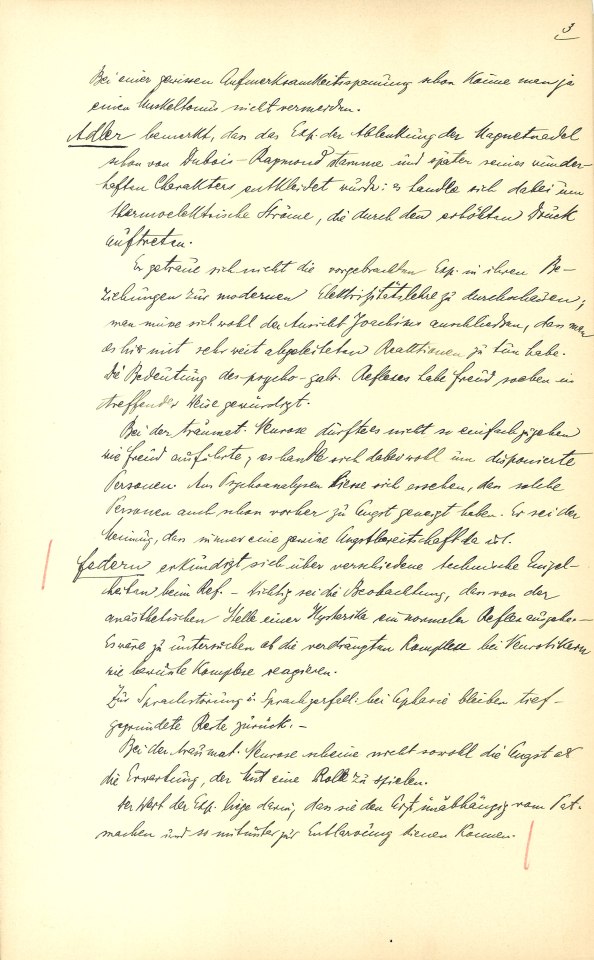 3
Bei einer gewissen Aufmerksamkeitsspannung schon könne man ja
einen Muskeltonus nicht vermeiden.
Adler bemerkt, dass das Exp. der Ablenkung der Magnetnadel
schon von Dubois-Raymond stamme und später seines wunder-
haften Charakters entkleidet wurde: es handle sich dabei um
thermoelektrische Ströme, die durch den erhöhten Druck
auftreten.
Er getraue sich nicht die vorgebrachten Exp. in ihren Be-
ziehungen zur modernen Elektrizitätslehre zu durchschauen;
man müsse sich wohl der Ansicht Joachims anschließen, dass man
es hier mit sehr weit abgeleiteten Reaktionen zu tun habe.
Die Bedeutung des psycho-galv. Reflexes habe Freud soeben in
treffender Weise gewürdigt.
Bei der traumat. Neurose dürfte es nicht so einfach zugehen
wie Freud ausführte; es handle sich dabei wohl um disponierte
Personen. Aus Psychoanalysen liesse sich ersehen, dass solche
Personen auch schon vorher zu Angst geneigt haben. Er sei der
Meinung, dass immer eine gewisse Angstbereitschaft da ist.
Federn erkundigt sich über verschiedene technische Einzel-
heiten beim Ref. - Wichtig sei die Beobachtung, dass von der
anästhetischen Stelle einer Hysterika ein normaler Reflex ausgehe.-
Es wäre zu untersuchen ob die verdrängten Komplexe bei Neurotikern
wie bewusste Komplexe reagieren.
Zur Sprachstörung u. Sprachzerfall: bei Aphasie bleiben tief-
gegründete Reste zurück.-
Bei der traumat. Neurose scheine nicht sowohl die Angst als
die Erwartung, der eine Rolle zu spielen.
Der Wert der Exp. liege darin, dass sie den Arzt unabhängig vom Pat.
machen und so mitunter zur Entlarvung dienen können.